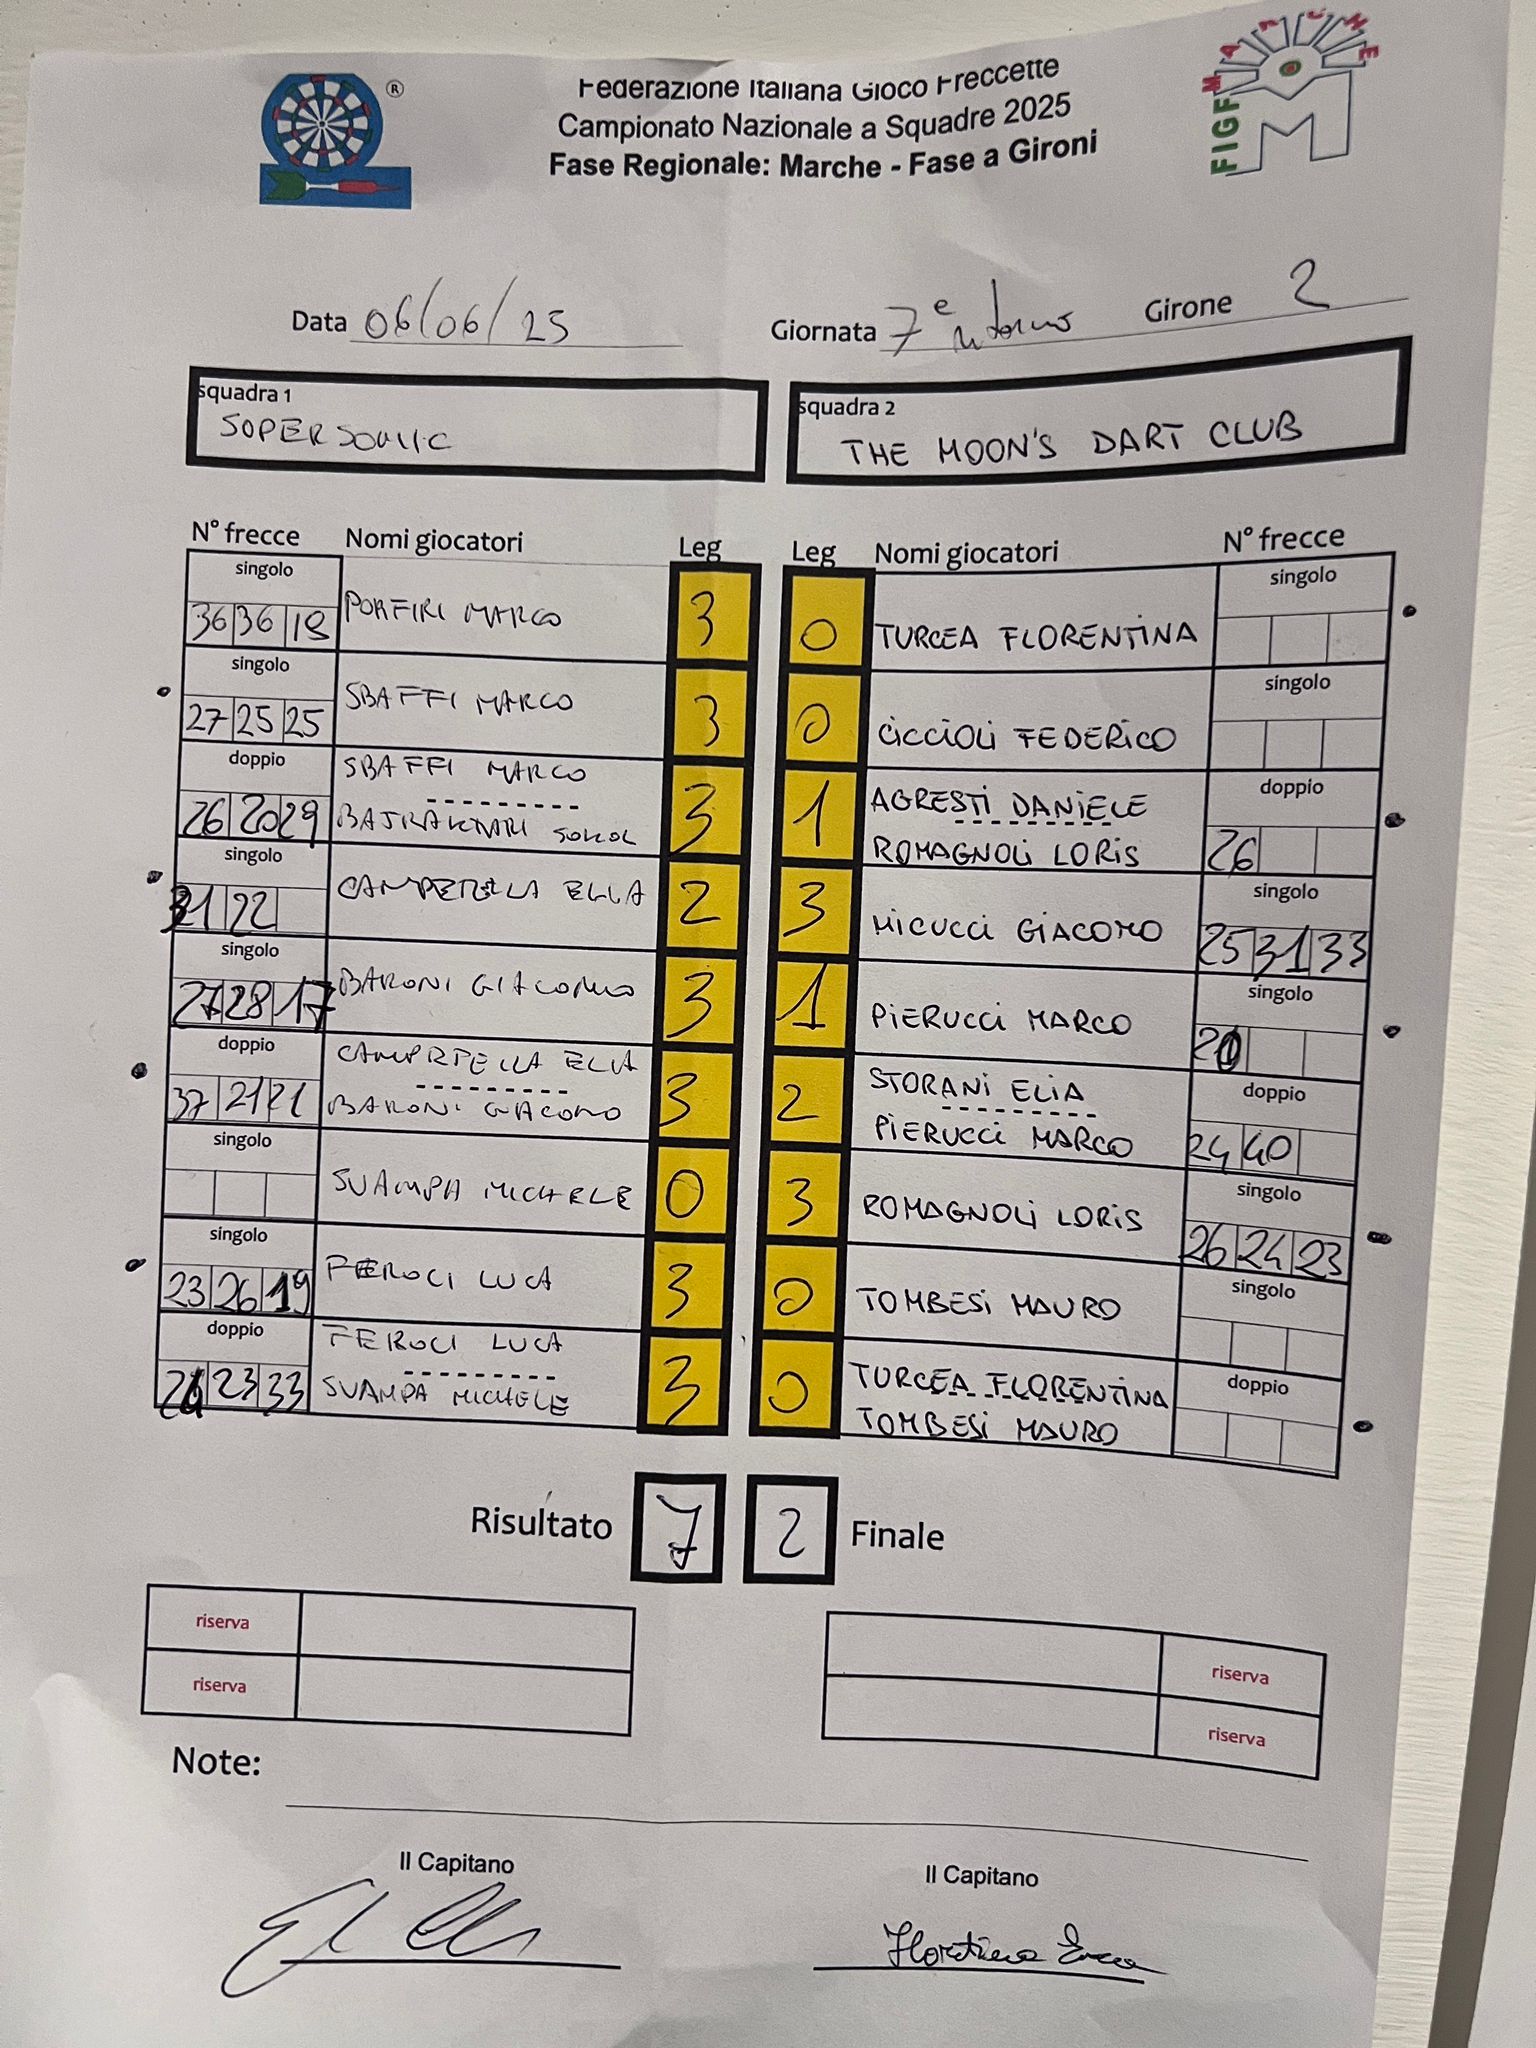 ®
Federazione Italiana Gioco Freccette
Campionato Nazionale a Squadre 2025
Fase Regionale: Marche - Fase a Gironi
MARCHE
FIGF
Data 06/06/25
Giornata 7ª ritorno Girone 2
squadra 1
SUPERSONIC
squadra 2
THE MOON'S DART CLUB
N° frecce Nomi giocatori Leg Leg Nomi giocatori N° frecce
singolo singolo
36 36 18 PORFIRI MARCO 3 0 TURCEA FLORENTINA
singolo singolo
27 25 25 SBAFFI MARCO 3 0 CICCIOLI FEDERICO
doppio SBAFFI MARCO AGRESTI DANIELE doppio
26 20 29 BAJRAKTARI SOKOL 3 1 ROMAGNOLI LORIS 26
singolo singolo
31 22 CAMPETELLA ELIA 2 3 MICUCCI GIACOMO 25 31 33
singolo singolo
27 28 17 BARONI GIACOMO 3 1 PIERUCCI MARCO
doppio CAMPETELLA ELIA STORANI ELIA doppio
37 21 21 BARONI GIACOMO 3 2 PIERUCCI MARCO 24 40
singolo singolo
SVAMPA MICHELE 0 3 ROMAGNOLI LORIS 26 24 23
singolo singolo
23 26 19 FEROCI LUCA 3 0 TOMBESI MAURO
doppio FEROCI LUCA TURCEA FLORENTINA doppio
23 33 SVAMPA MICHELE 3 0 TOMBESI MAURO
Risultato 7 2 Finale
riserva riserva
riserva riserva
Note:
Il Capitano Il Capitano